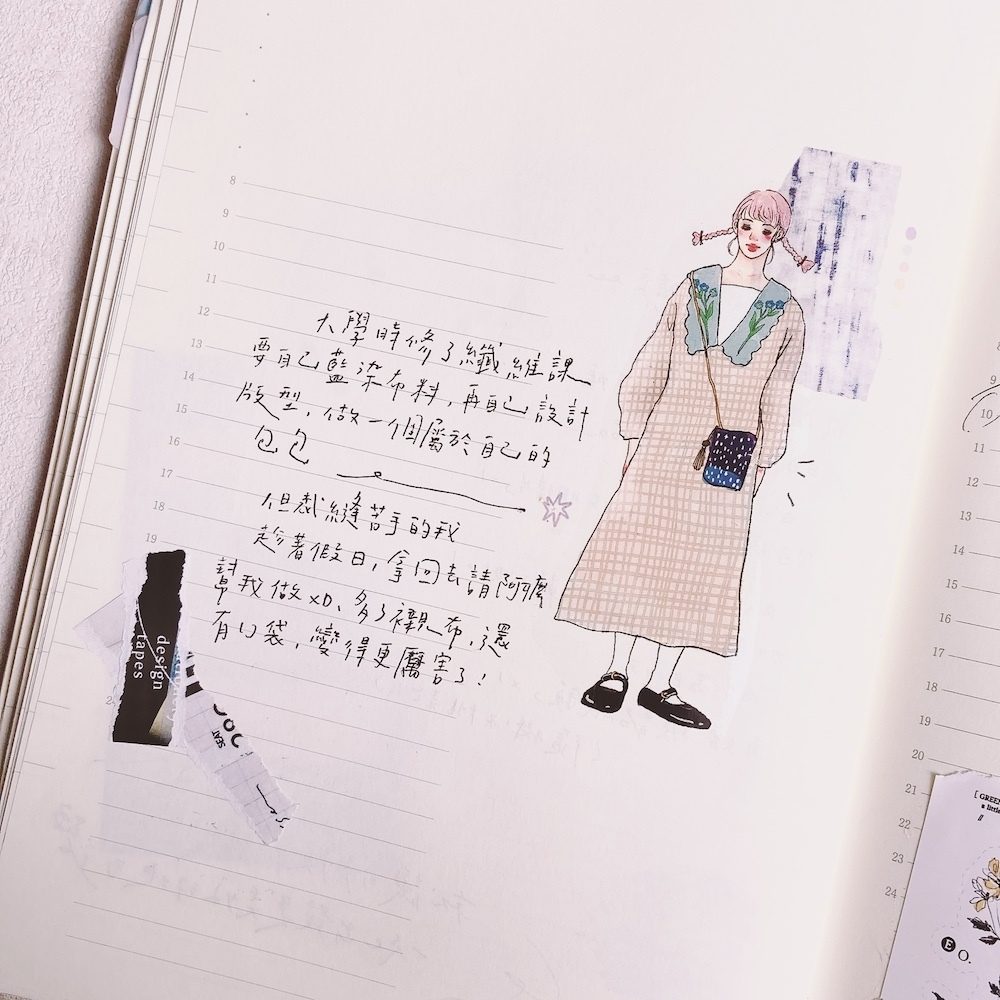 8
9
10
11
12
13
14
15
16
17
18
19
大學時修了纖維課
要自己藍染布料,再自己設計
版型,做一個屬於自己的
包包
但裁縫苦手的我
趁著假日,拿回去請阿嬤
幫我做xD、多了襯布,還
有口袋,變得更厲害了!
design
tapes
9
10
11
12
13
14
15
16
17
18
19
20
21
22
23
24
[ GREEN
little
E O.